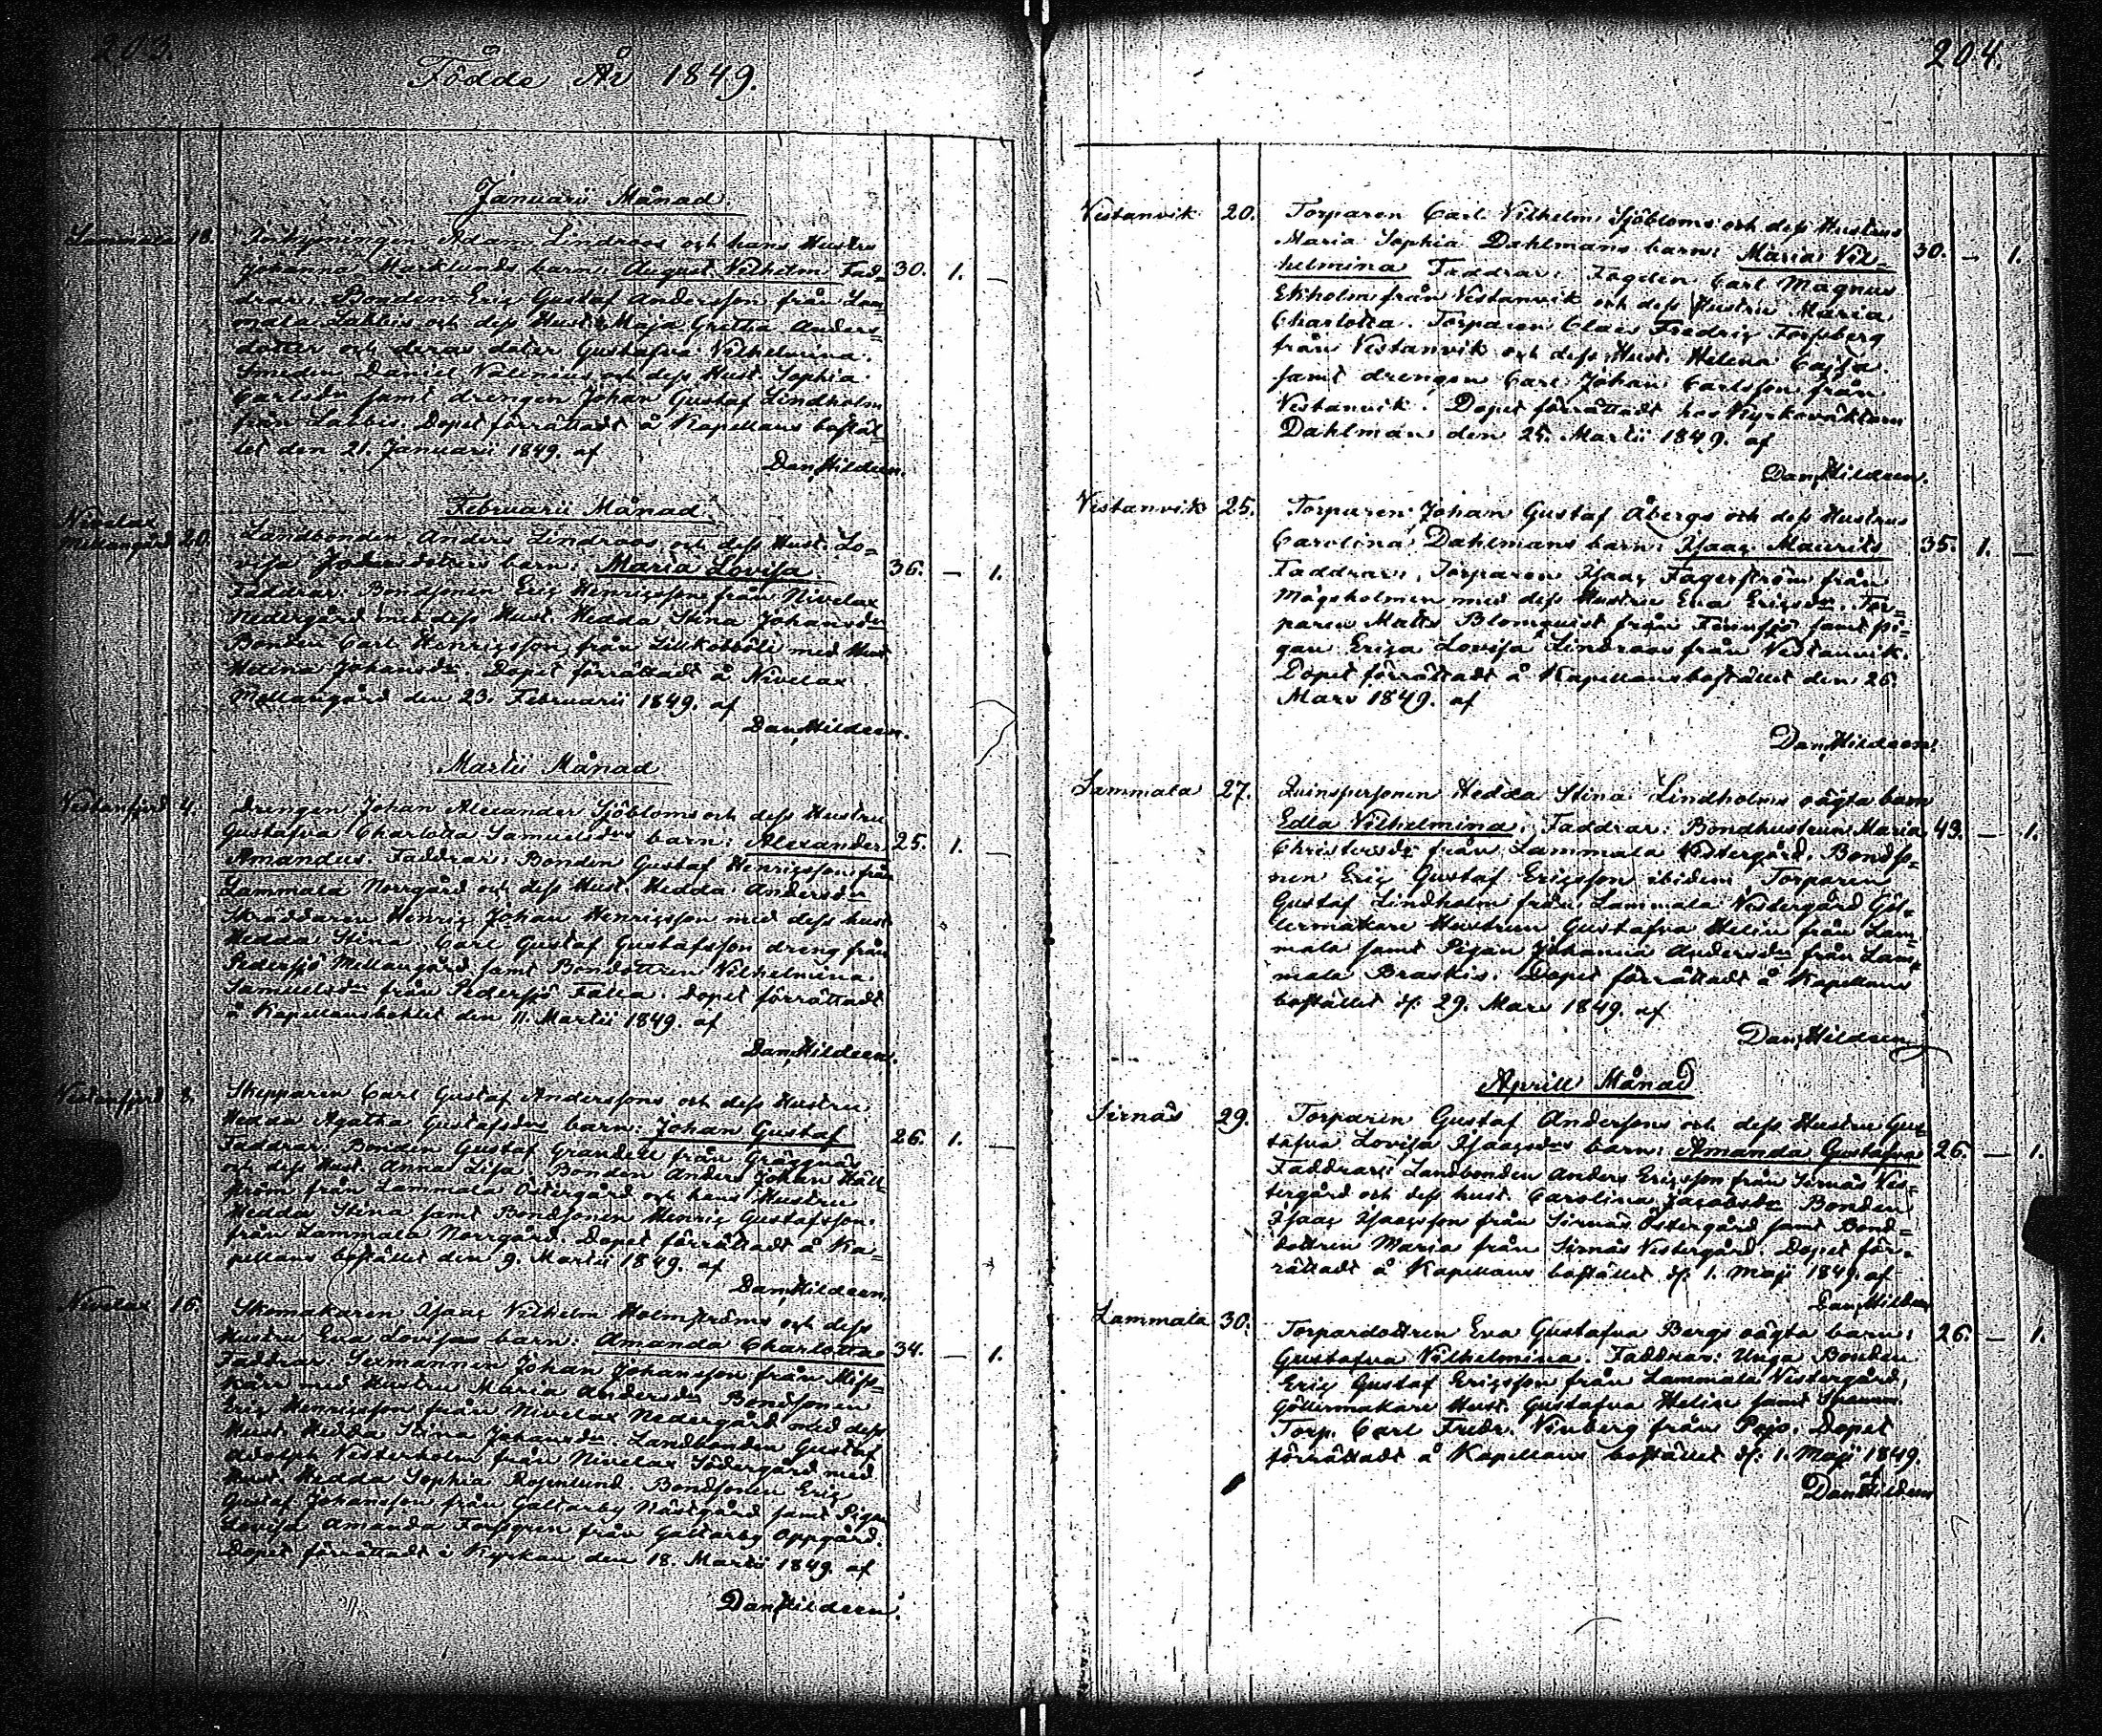 203.
Födde År 1849.
Januarii Månad
Lammala 18. Inhysningen Adam Lindroos och hans Hustru
Johanna Marklunds barn: August Vilhelm Fad= 30. 1. —
drar: Bonden Eric Gustaf Andersson från Lam=
mala Labbis och dess Hust: Maja Gretha Anders=
dotter och deras doter Gustafva Vilhelmina.
Smeden Daniel Valenius och dess Hust. Sophia
Carlsdr samt drengen Johan Gustaf Lindholm
från Labbis. Dopet förrättadt å Kapellans bostäl=
let den 21. Januarii 1849. af
Dan, Hildeen.
Februarii Månad.
Nivelax
Mellangård 20. Landbonden Anders Lindroos och dess Hust. Lo=
visa barn: Maria Lovisa. 36. — 1.
Faddrar: Bondsonen Eric Henricsson från Nivelax
Nedergård med dess Hust. Hedda Stina Johansdr
Bonden Carl Henricsson från Lillköbböle med Hust
Helena Johansdr. Dopet förrättadt å Nivelax
Mellangård den 23. Februarii 1849. af
Dan, Hildeen.
Martii Månad
Vestanfjerd 4. Drengen Johan Alexander Sjöbloms och dess Hustru
Gustafva Charlotta Samuelsdrs barn: Alexander 25. 1. —
Amandus. Faddrar: Bonden Gustaf Henricsson från
Lammala Norrgård och dess Hust. Hedda Andersdr
Skräddaren Henric Johan Henricsson med dess hust
Hedda Stina Carl Gustaf Gustafsson dreng från
Pedersjö Mellangård samt Bondottren Vilhelmina
Samuelsdr från Pedersjö Falla. Dopet förrättadt
å Kapellansbohlet den 11. Martii 1849. af
Dan, Hildeen.
Vestanfjerd 8. Skepparen Carl Gustaf Anderssons och dess Hustru
Hedda Agatha Gustafsdrs barn: Johan Gustaf 26. 1. —
Faddrar: Bonden Gustaf Grandell från Gräggnäs
och dess Hust. Anna Lisa. Bonden Anders Johan Häll=
ström från Lammala Östergård och hans Hustru
Hedda Stina samt Bondsonen Henric Gustafsson.
från Lammala Norrgård. Dopet förrättadt å Ka=
pellans bostället den 9. Martii 1849. af
Dan, Hildeen.
Nivelax 16. Skomakaren Isaac Vilhelm Holmströms och dess
Hustru Eva Lovisas barn: Amanda Charlotta 34. — 1.
Faddrar: Sexmannen Johan Johansson från Miss=
kärr med Hustru Maria Andersdr Bondsonen
Eric Henricsson från Nivelax Nedergård med dess
Hust. Hedda Stina Johansdr. Landbonden Gustaf
Adolph Vesterholm från Nivelax Södergård med
Hust. Hedda Sophia Rosenlund. Bondsonen Eric
Gustaf Johansson från Galtarby Nästgård samt Pigan
Lovisa Amanda Forsgren från Galtarby Oppgård.
Dopet förrättadt i Kyrkan den 18. Martii 1849. af
Dan, Hildeen.
204.
Vestanvik 20. Torparen Carl Vilhelm Sjöbloms och dess Hustrus
Maria Sophia Dahlmans barn: Maria Vil= 30. — 1.
helmina Faddrar: Fogden Carl Magnus
Ekholm från Vestanvik och dess Hustru Maria
Charlotta. Torparen Claes Fredric Forssberg
från Vestanvik och dess Hust. Helena Cajsa
samt drengen Carl Johan Carlsson från
Vestanvik. Dopet förrättadt hos Kyrkoväktarn
Dahlman den 25. Martii 1849. af
Dan, Hildeen.
Vestanvik 25. Torparen Johan Gustaf Åbergs och dess Hustrus
Carolina Dahlmans barn: Isaac Maurits 35. 1. —
Faddrar: Torparen Isaac Fagerström från
Mågsholmen med dess Hustru Eva Ericsdr. Tor=
paren Matts Blomquist från Finnsjö samt pi=
gan Erica Lovisa Lindroos från Vestanvik.
Dopet förrättadt å Kapellansbostället den 26.
Mars 1849. af
Dan, Hildeen.
Lammala 27. Qvinspersonen Hedda Stina Lindholms oägta barn
Edla Vilhelmina. Faddrar: Bondhustrun Maria 43. — 1.
Christersdr från Lammala Vestergård. Bondso=
nen Eric Gustaf Ericsson ibidem Torparen
Gustaf Lindholm från Lammala Vestergård Göl=
lermakare Hustrun Gustafva Helin från Lam=
mala samt Pigan Johanna Andersdr från Lam=
mala Braskis. Dopet förrättadt å Kapellans
bostället d: 29. Mars 1849. af
Dan, Hildeen
Aprill Månad
Sirnäs 29. Torparen Gustaf Anderssons och dess Hustru Gus=
tafva Lovisa Isaacsdrs barn: Amanda Gustafva 26. — 1.
Faddrar: Landbonden Anders Ericsson från Sirnäs Ves=
tergård och dess hust. Carolina Jacobsdr Bonden
Isaac Isaacsson från Sirnäs Östergård samt Bond=
dottren Maria från Sirnäs Vestergård. Dopet för=
rättadt å Kapellans bostället d: 1. Maji 1849. af
Dan, Hildeen
Lammala 30. Torpardottren Eva Gustafva Bergs oägta barn: 26. — 1.
Gustafva Vilhelmina. Faddrar: Unga Bonden
Eric Gustaf Ericsson från Lammala Vestergård,
Göllermakare Hust. Gustafva Helin samt
Torp. Carl Fredr. Vinberg från Pojo. Dopet
förrättadt å Kapellans bostället d: 1. Maji 1849.
af
Dan, Hildeen